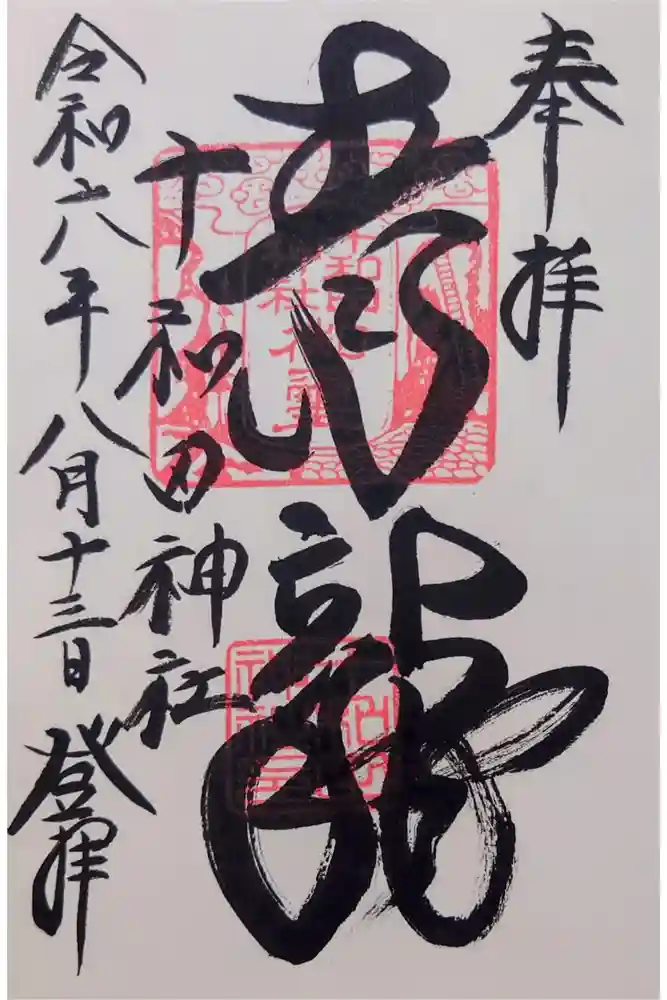 奉拝
青龍
十和田神社
令和六年八月十三日 登拝